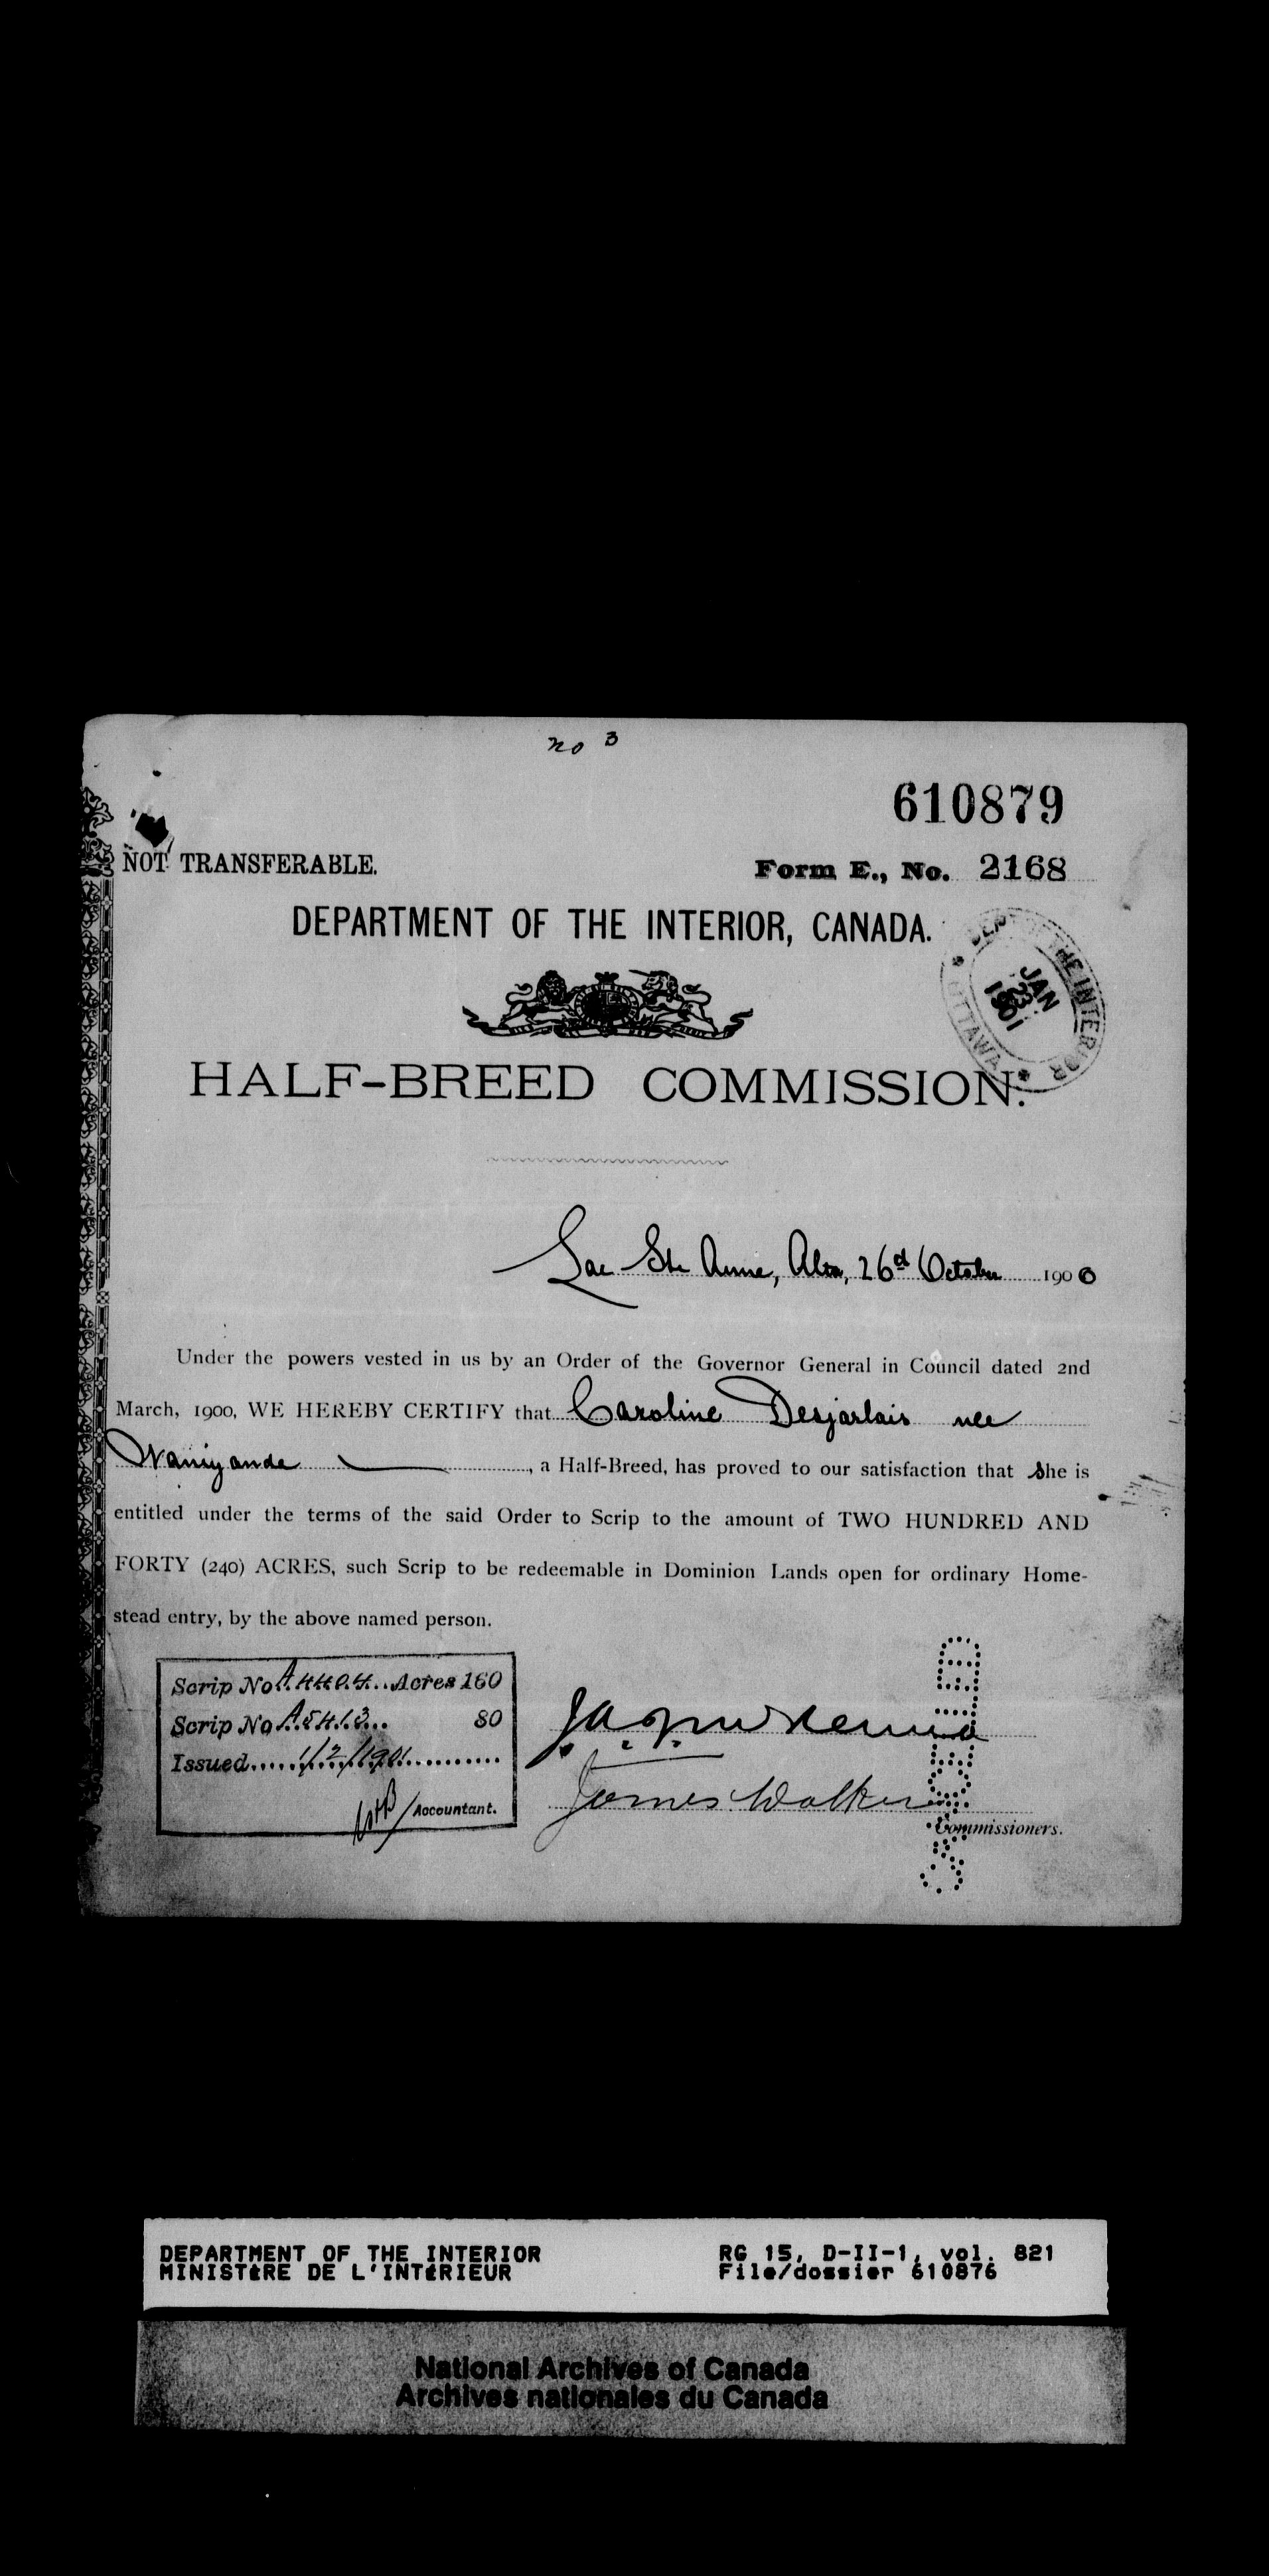 no 3
610879
NOT TRANSFERABLE.
Form E., No. 2168
DEPARTMENT OF THE INTERIOR, CANADA.
DEPT OF THE INTERIOR
JAN
23
1901
OTTAWA
HALF-BREED COMMISSION.
Lac Ste Anne, Alta, 26d October 1900
Under the powers vested in us by an Order of the Governor General in Council dated 2nd
March, 1900, WE HEREBY CERTIFY that Caroline Desjarlais nee
Waniyande, a Half-Breed, has proved to our satisfaction that she is
entitled under the terms of the said Order to Scrip to the amount of TWO HUNDRED AND
FORTY (240) ACRES, such Scrip to be redeemable in Dominion Lands open for ordinary Home-
stead entry, by the above named person.
Scrip No A.4404... Acres 160
Scrip No A.5413... 80
Issued.....1/2/1901..........
Accountant.
J.A.J. McKenna
James Walker
Commissioners.
DEPARTMENT OF THE INTERIOR
MINISTÈRE DE L'INTÉRIEUR
RG 15, D-II-1, vol. 821
File/dossier 610876
National Archives of Canada
Archives nationales du Canada